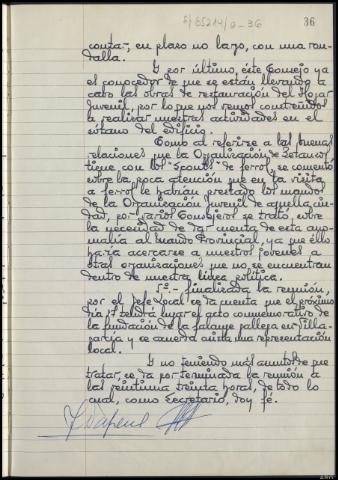 S/65214/9-36
36
contar, en plazo no lejo, con una ron-
dalla.
Y por último, éste Consejo ya
es conocedor de que se están llevando a
cabo las obras de restauración del Hogar
Juvenil, por lo que nos vemos constreñidos
a realizar nuestras actividades en el
sótano del edificio.
Como al referirse a las buenas
relaciones que la Organización de Betanzos
tiene con los "Scouts" de Ferrol, se comentó
sobre la poca atención que en la visita
a Ferrol le habían prestado los mandos
de la Organización Juvenil de aquella ciu-
dad, por varios Consejeros se trató, sobre
la necesidad de dar cuenta de esta ano-
malía al Mando Provincial, ya que ello
haría acercarse a nuestros jóvenes a
otras organizaciones que no se encuentran
dentro de nuestra línea política.
5º.- Finalizada la reunión,
por el Jefe Local, se da cuenta que el próximo
día 17 tendrá lugar el acto conmemorativo de
la fundación de la Falange gallega en Villa-
garcía y se acuerda asista una representación
local.
Y no teniendo más asuntos de que
tratar, se da por terminada la reunión a
las veintiuna treinta horas, de todo lo
cual, como Secretario, doy fé.